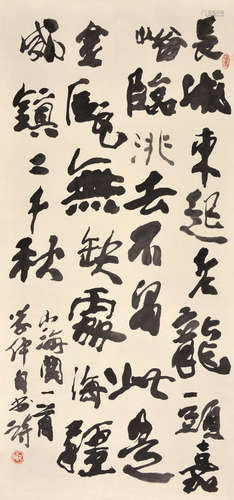 長城東起老龍頭嘉
峪臨洮去不留此是
金甌無缺處海疆
威鎮二千秋
山海關一首
學仲自書詩